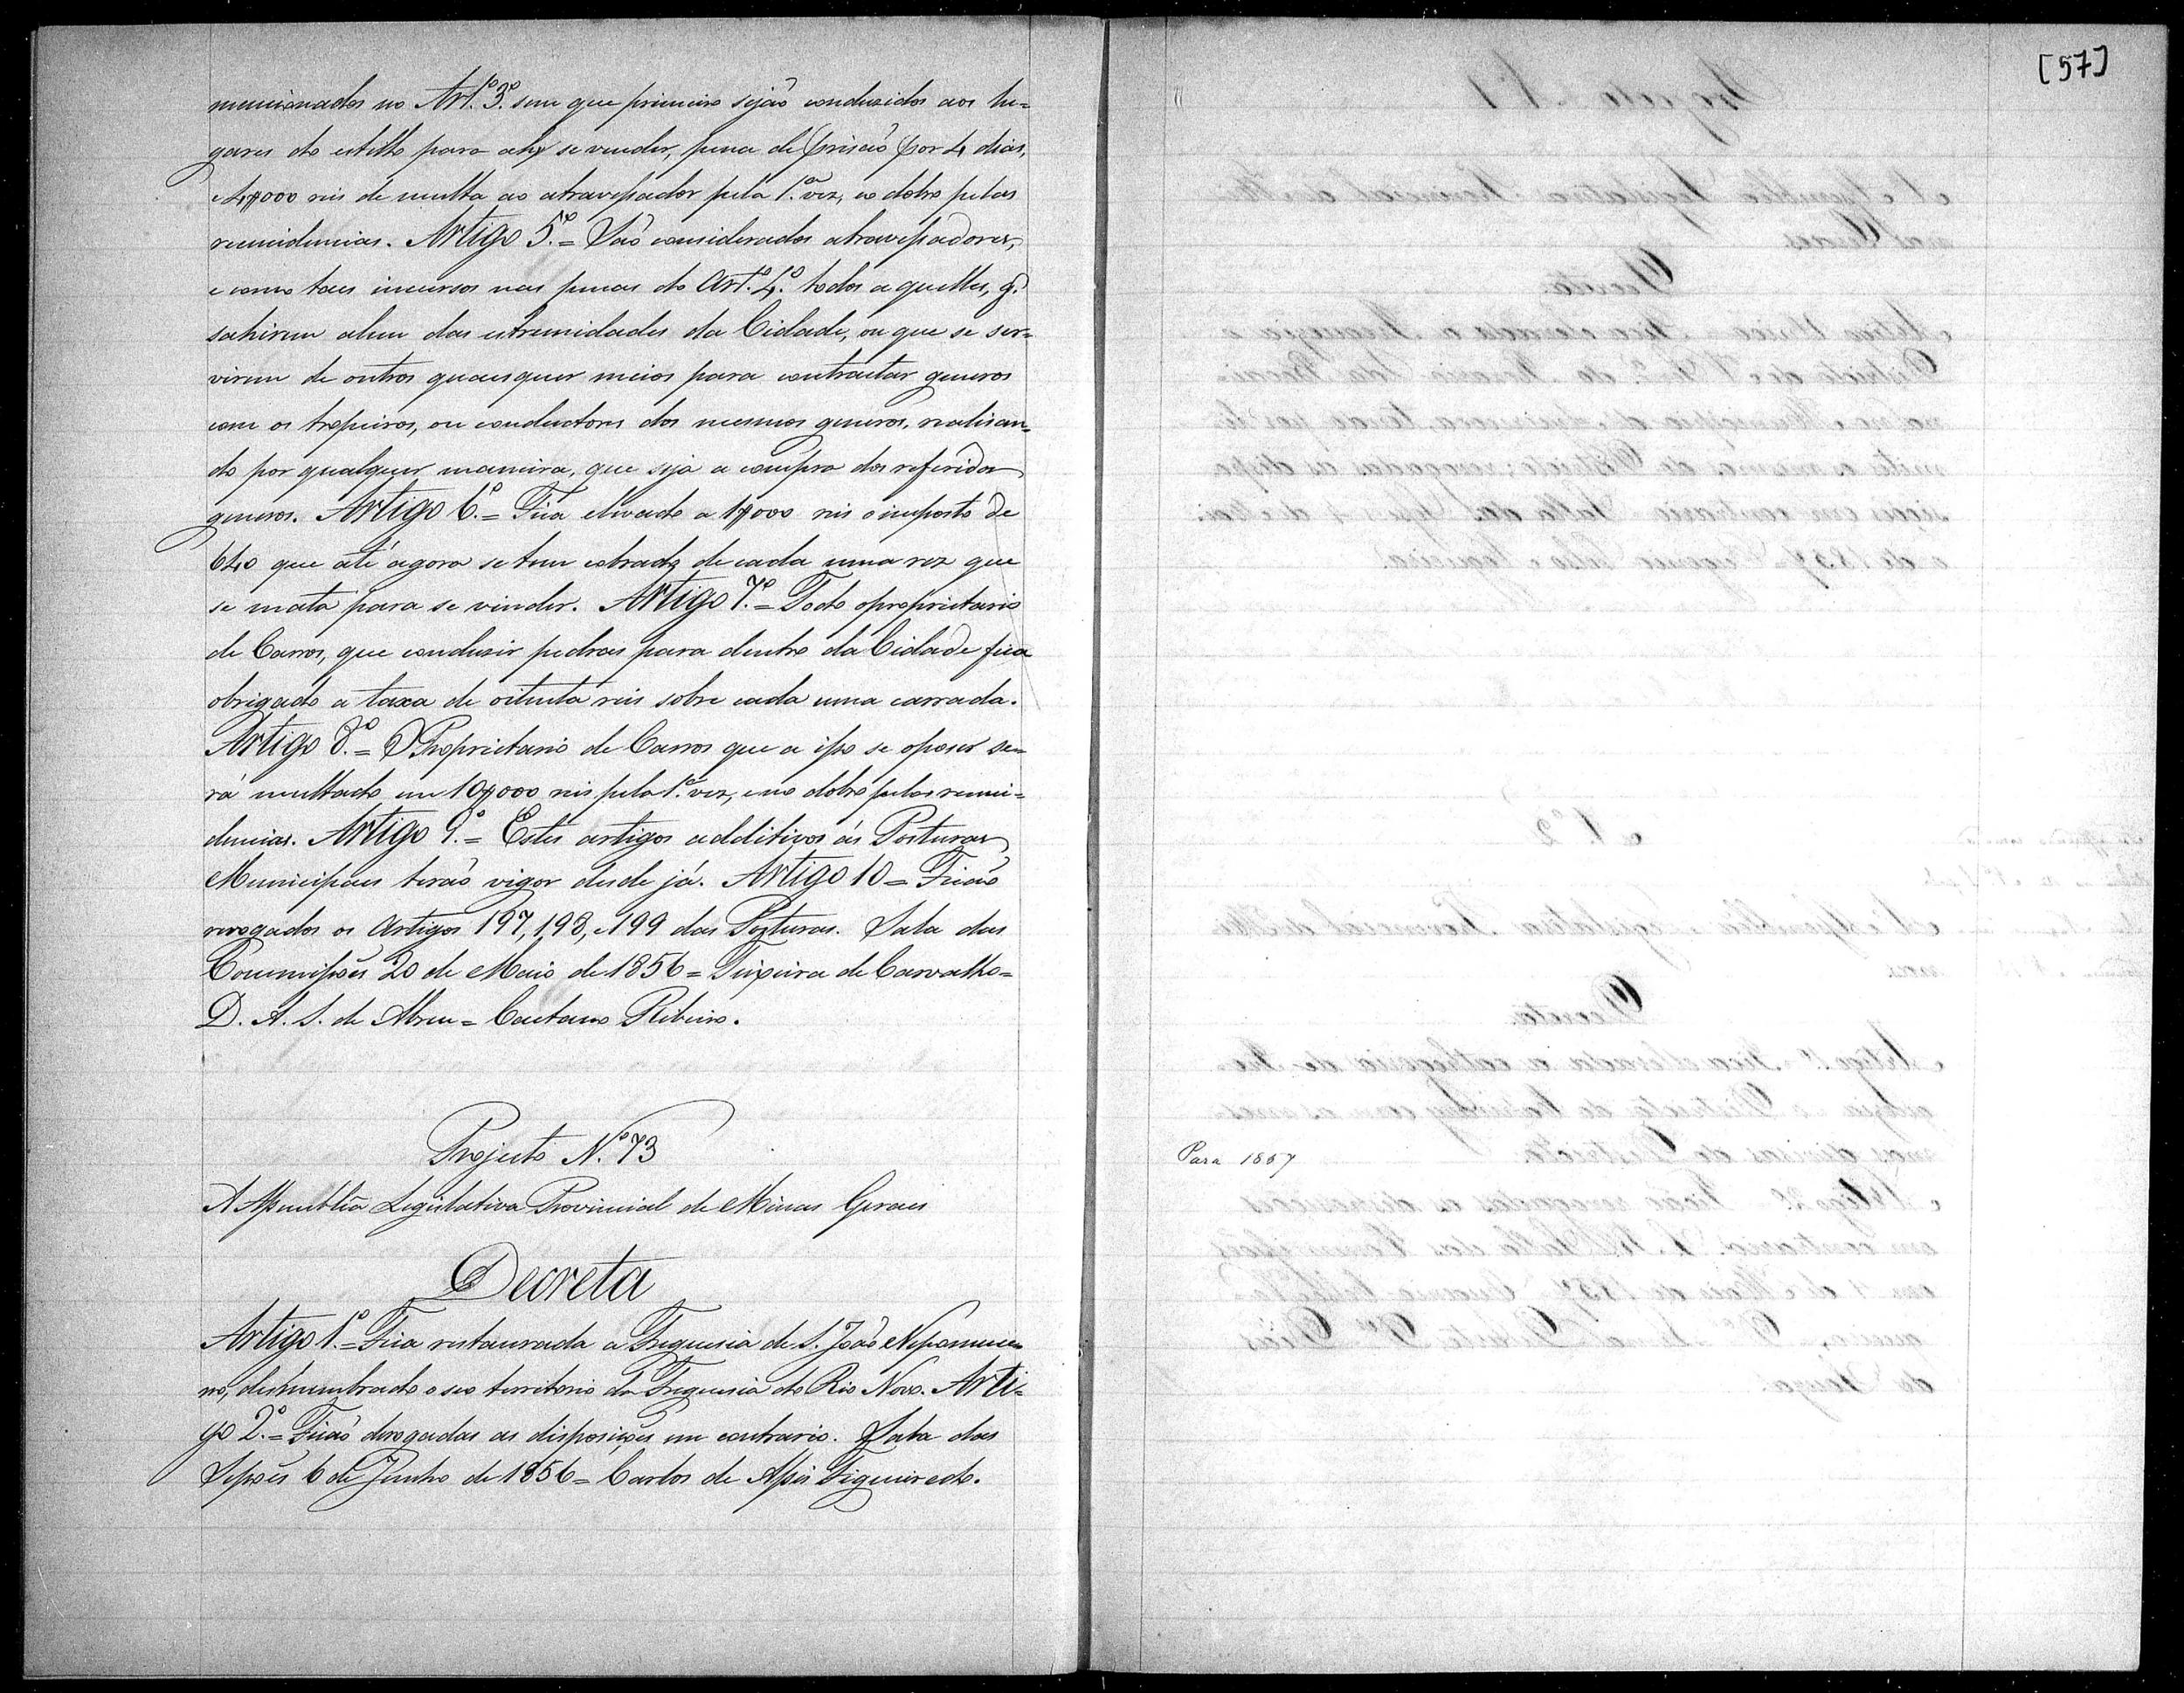 mencionados no Art.º 3.º sem que primeiro sejão conduzidos aos lu=
gares do estillo para ahy se vender, pena de prisão por 4 dias,
e 4$000 reis de multa ao atravessador pela 1.ª vez, e o dobro pelas
reincidencias. Artigo 5.º = São considerados atravessadores,
e como taes incursos nas penas do Art.º 4.º todos aquelles, q.
sahirem alem das estremidades da Cidade, ou que se ser=
virem de outros quaesquer meios para contractar generos
com os tropeiros, ou conductores dos mesmos generos, realisan=
do por qualquer maneira, que seja a compra dos referidos
generos. Artigo 6.º = Fica elevado a 1$000 reis o imposto de
640 que até agora se tem cobrado de cada uma rez que
se mata para se vinder. Artigo 7.º = Todo o proprietario
de Carros, que conduzir pedras para dentro da Cidade fica
obrigado a taxa de oitenta reis sobre cada uma carrada.
Artigo 8.º = O Proprietario de Carros que a isso se oposer se=
rá multado em 10$000 reis pela 1.ª vez, e no dobro pelas reinci=
dencias. Artigo 9.º = Estes artigos additivos ás Posturas
Municipaes terão vigor desde já. Artigo 10 = Ficão
revogados os Artigos 197, 198, e 199 das Posturas. Sala das
Commissões 20 de Maio de 1856 = Teixeira de Carvalho =
D. A. S. de Abreu = Caetano Ribeiro.
Projecto N.º 73
A Assembléa Legislativa Provincial de Minas Geraes
Decreta
Artigo 1.º = Fica restaurada a Freguesia de S. João Nepomuce=
no, desmembrado o seo territorio da Freguesia do Rio Novo. Arti=
go 2.º = Ficão derogadas as disposições em contrario. Sala das
Sessões 6 de Junho de 1856 = Carlos de Assis Figueiredo.
[57]
Para 1857